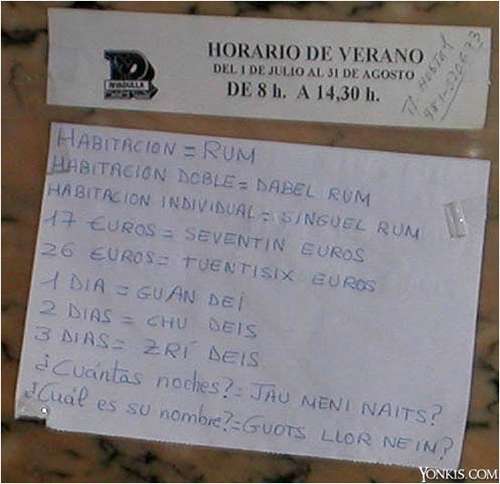 HORARIO DE VERANO
DEL 1 DE JULIO AL 31 DE AGOSTO
DE 8 h. A 14,30 h.
HABITACION = RUM
HABITACION DOBLE = DABEL RUM
HABITACION INDIVIDUAL = SINGUEL RUM
17 EUROS = SEVENTIN EUROS
26 EUROS = TUENTISIX EUROS
1 DIA = GUAN DEÍ
2 DIAS = CHU DEIS
3 DIAS = ZRÍ DEIS
¿Cuántas noches? = JAU MENI NAITS?
¿Cuál es su nombre? = GUOTS LLOR NEIM?
YONKIS.COM